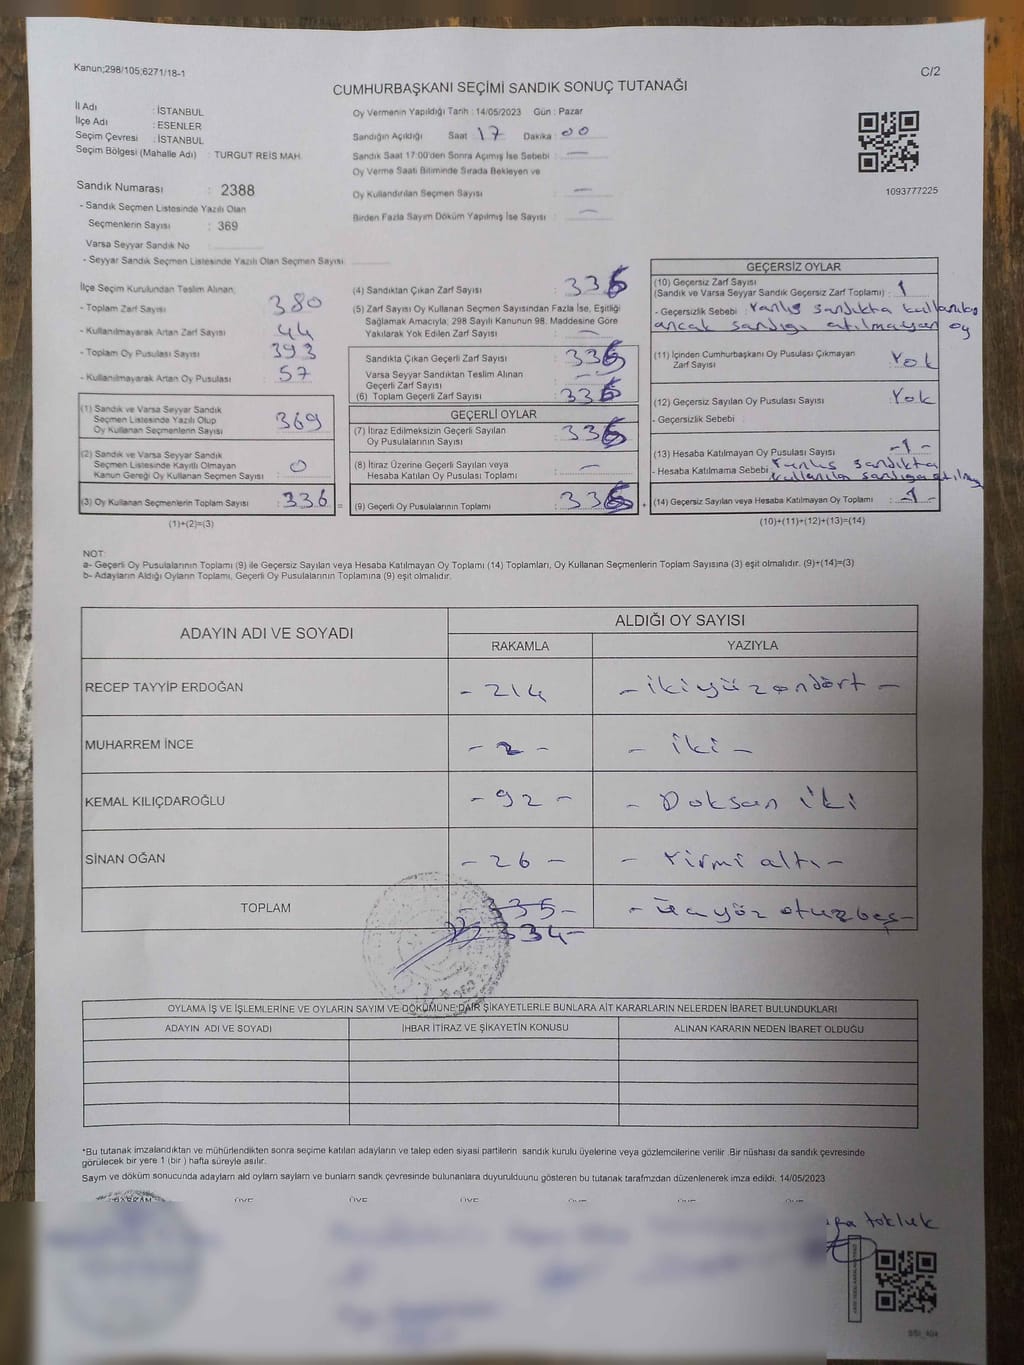 Kanun;298/105;6271/18-1
C/2
CUMHURBAŞKANI SEÇİMİ SANDIK SONUÇ TUTANAĞI
İl Adı : İSTANBUL
İlçe Adı : ESENLER
Seçim Çevresi : İSTANBUL
Seçim Bölgesi (Mahalle Adı) : TURGUT REİS MAH.
Sandık Numarası : 2388
- Sandık Seçmen Listesinde Yazılı Olan
Seçmenlerin Sayısı : 369
Varsa Seyyar Sandık No
- Seyyar Sandık Seçmen Listesinde Yazılı Olan Seçmen Sayısı:
Oy Vermenin Yapıldığı Tarih : 14/05/2023 Gün : Pazar
Sandığın Açıldığı Saat : 17 Dakika : 00
Sandık Saat 17:00'den Sonra Açımış İse Sebebi : —
Oy Verme Saati Bitiminde Sırada Bekleyen ve
Oy Kullandırılan Seçmen Sayısı : —
Birden Fazla Sayım Döküm Yapılmış İse Sayısı : —
1093777225
İlçe Seçim Kurulundan Teslim Alınan;
- Toplam Zarf Sayısı : 380
- Kullanılmayarak Artan Zarf Sayısı : 44
- Toplam Oy Pusulası Sayısı : 393
- Kullanılmayarak Artan Oy Pusulası : 57
(1) Sandık ve Varsa Seyyar Sandık
Seçmen Listesinde Yazılı Olup
Oy Kullanan Seçmenlerin Sayısı : 369
(2) Sandık ve Varsa Seyyar Sandık
Seçmen Listesinde Kayıtlı Olmayan
Kanun Gereği Oy Kullanan Seçmen Sayısı : 0
(3) Oy Kullanan Seçmenlerin Toplam Sayısı : 336
(1)+(2)=(3)
(4) Sandıktan Çıkan Zarf Sayısı : 336
(5) Zarf Sayısı Oy Kullanan Seçmen Sayısından Fazla İse, Eşitliği
Sağlamak Amacıyla; 298 Sayılı Kanunun 98. Maddesine Göre
Yakılarak Yok Edilen Zarf Sayısı : —
Sandıkta Çıkan Geçerli Zarf Sayısı : 33
Varsa Seyyar Sandıktan Teslim Alınan
Geçerli Zarf Sayısı : —
(6) Toplam Geçerli Zarf Sayısı : 33
GEÇERLİ OYLAR
(7) İtiraz Edilmeksizin Geçerli Sayılan
Oy Pusulalarının Sayısı : 33
(8) İtiraz Üzerine Geçerli Sayılan veya
Hesaba Katılan Oy Pusulası Toplamı : —
(9) Geçerli Oy Pusulalarının Toplamı : 33
GEÇERSİZ OYLAR
(10) Geçersiz Zarf Sayısı
(Sandık ve Varsa Seyyar Sandık Geçersiz Zarf Toplamı) : 1
- Geçersizlik Sebebi : Yanlış sandıkta kullanılıp
ancak sandığı atılmayan oy
(11) İçinden Cumhurbaşkanı Oy Pusulası Çıkmayan
Zarf Sayısı : Yok
(12) Geçersiz Sayılan Oy Pusulası Sayısı : Yok
- Geçersizlik Sebebi :
(13) Hesaba Katılmayan Oy Pusulası Sayısı : -1-
- Hesaba Katılmama Sebebi : Yanlış sandıkta
kullanılıp sandığa
(14) Geçersiz Sayılan veya Hesaba Katılmayan Oy Toplamı : -1-
(10)+(11)+(12)+(13)=(14)
NOT:
a- Geçerli Oy Pusulalarının Toplamı (9) ile Geçersiz Sayılan veya Hesaba Katılmayan Oy Toplamı (14) Toplamları, Oy Kullanan Seçmenlerin Toplam Sayısına (3) eşit olmalıdır. (9)+(14)=(3)
b- Adayların Aldığı Oyların Toplamı, Geçerli Oy Pusulalarının Toplamına (9) eşit olmalıdır.
ADAYIN ADI VE SOYADI
ALDIĞI OY SAYISI
RAKAMLA YAZIYLA
RECEP TAYYİP ERDOĞAN - 214 - ikiyüzondört -
MUHARREM İNCE - 2 - - iki -
KEMAL KILIÇDAROĞLU - 92 - - Doksan iki
SİNAN OĞAN - 26 - - Yirmi altı -
TOPLAM - 335 - - üçyüz otuzbeş -
334-
OYLAMA İŞ VE İŞLEMLERİNE VE OYLARIN SAYIM VE DÖKÜMÜNE DAİR ŞİKAYETLERLE BUNLARA AİT KARARLARIN NELERDEN İBARET BULUNDUKLARI
ADAYIN ADI VE SOYADI İHBAR İTİRAZ VE ŞİKAYETİN KONUSU ALINAN KARARIN NEDEN İBARET OLDUĞU
*Bu tutanak imzalandıktan ve mühürlendikten sonra seçime katılan adayların ve talep eden siyasi partilerin sandık kurulu üyelerine veya gözlemcilerine verilir. Bir nüshası da sandık çevresinde
görülecek bir yere 1 (bir ) hafta süreyle asılır.
Sayım ve döküm sonucunda adayların ald oyların sayların ve bunların sandk çevresinde bulunanlara duyurulduunu gösteren bu tutanak tarafmzdan düzenlenerek imza edildi. 14/05/2023